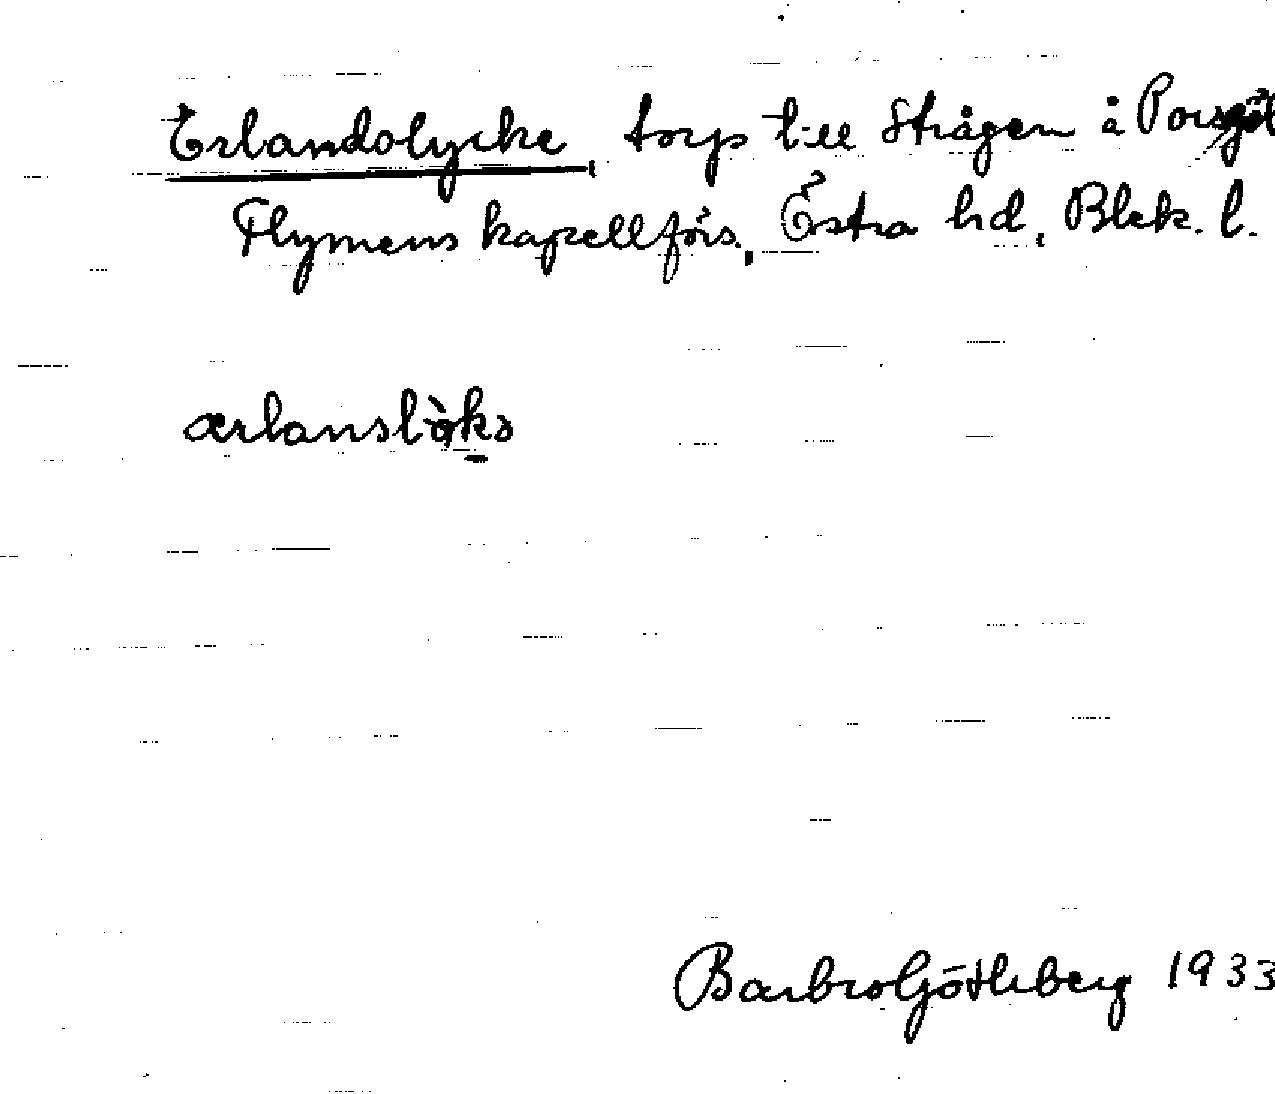 Erlandslycke, torp till Strågen å Porsgöl
Flymens kapellförs., Östra hd, Blek. l.
ærlanslỳkə
Barbro Götlberg 1933